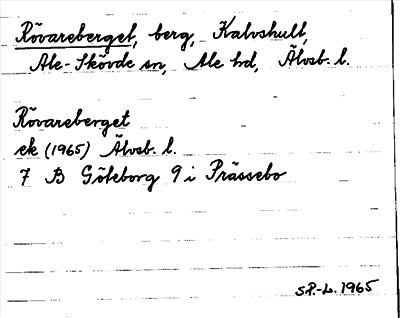 Rövareberget, berg, Kalvshult,
Ale-Skövde sn, Ale hd, Älvsb. l.
Rövareberget
ek (1965) Älvsb. l.
7 B Göteborg 9 i Prässebo
SP.-L. 1965